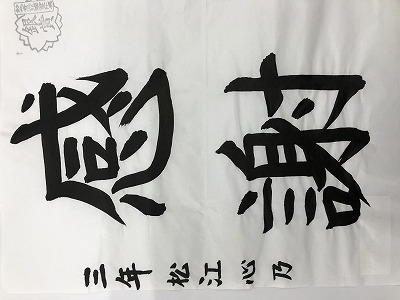 感謝
三年 松江心乃